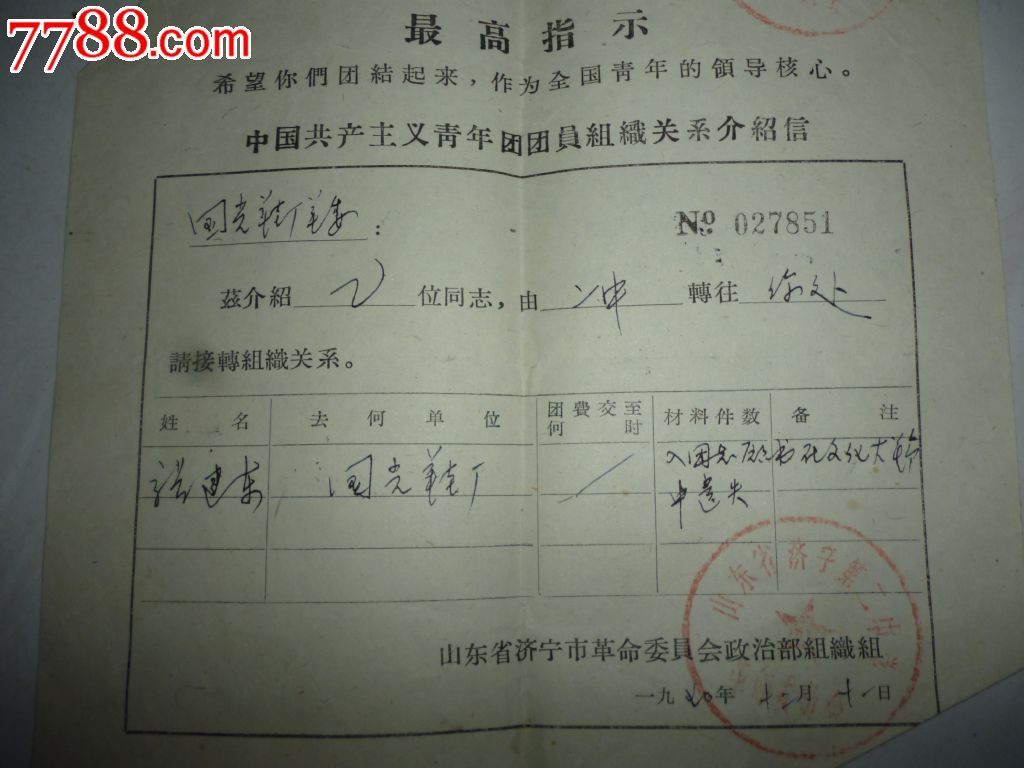 7788.com
最高指示
希望你們团結起来，作为全国青年的領导核心。
中国共产主义青年团团員組織关系介紹信
国光鞋厂革委：
№ 027851
茲介紹 位同志，由 二中 轉往 你处
請接轉組織关系。
姓名 去何单位 团費交至何时 材料件数 备注
张建东 国光鞋厂 入团志愿书在文化大革命
中遗失
山东省济宁第二中学
山东省济宁市革命委員会政治部組織組
一九七〇年十二月十一日